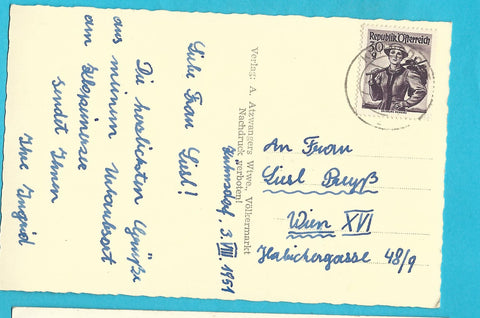 Kühnsdorf, 3.VIII.1951
Liebe Frau Liesl!
Die herzlichsten Grüße
aus meinem Urlaubsort
am Klopeinersee
sendet Ihnen
Ihre Ingrid
Verlag: A. Atzwangers Wtwe., Völkermarkt
Nachdruck verboten!
Republik Österreich
30
g
An Frau
Liesl
Wien XVI
Habichergasse 48/9